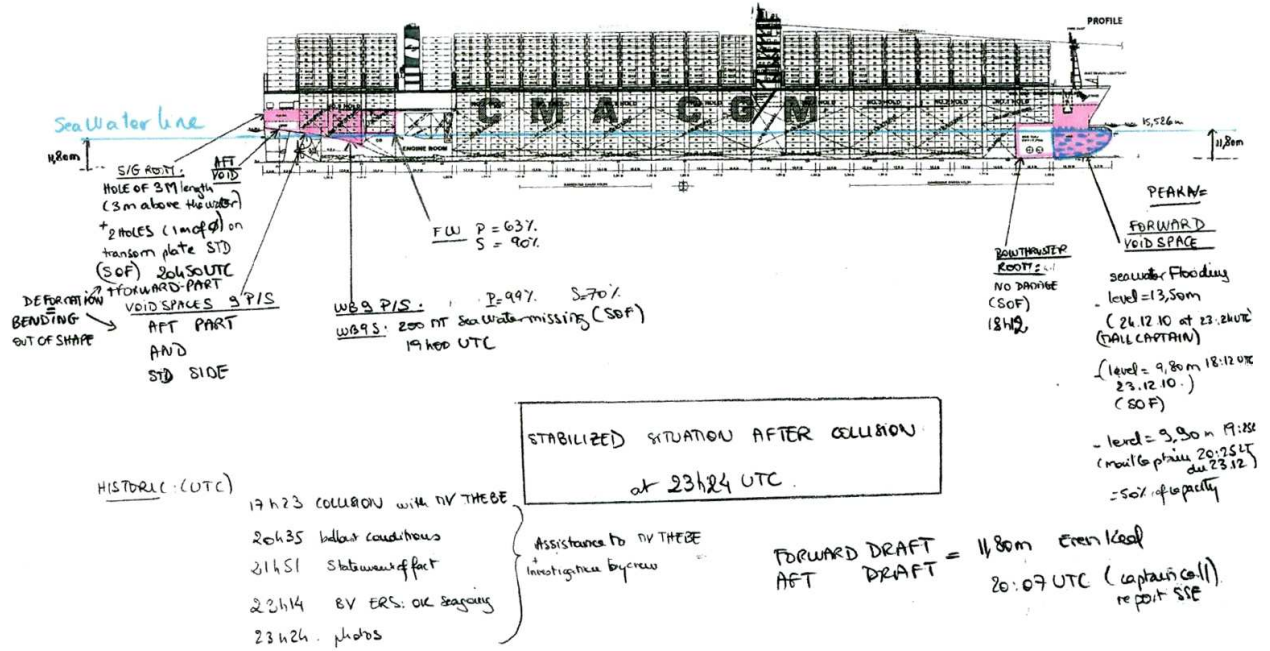 PROFILE
CMA CGM
NO.2 HOLD
NO.1 HOLD
ENGINE ROOM
Sea Water line
11,80m
15,526m
11,80m
S/G ROOM:
HOLE OF 3M length
(3m above the water)
+ 2 HOLES (1m of Ø) on
transom plate STD
(SOF) 20h50UTC
AFT
VOID
+ FORWARD-PART
VOID SPACES 9 P/S
AFT PART
AND
STD SIDE
DEFORMATION
=
BENDING
OUT OF SHAPE
FW P = 63%
S = 90%
WB9 P/S: P=99% S=70%
WB9S: 200 MT Sea Water missing (SOF)
19h00 UTC
BOWTHRUSTER
ROOM:
NO DAMAGE
(SOF)
18h12
FORWARD
VOID SPACE
seawater Flooding
- level=13,50m
(24.12.10 at 23:24UTC
(MAIL CAPTAIN)
- (level = 9,80m 18:12 UTC
23.12.10.)
(SOF)
- level = 9,90m
(mail Captain 20:25LT
du 23.12)
=50% of capacity
STABILIZED SITUATION AFTER COLLISION
at 23h24 UTC.
HISTORIC: (UTC)
17h23 COLLISION with MV THEBE
20h35 ballast conditions
21h51 Statement of fact
23h14 BV ERS: OK Seagoing
23h24. photos
Assistance to MV THEBE
+
Investigation by crew
FORWARD DRAFT = 11,80m Even Keel
AFT DRAFT
20:07 UTC (captain call)
report SSE